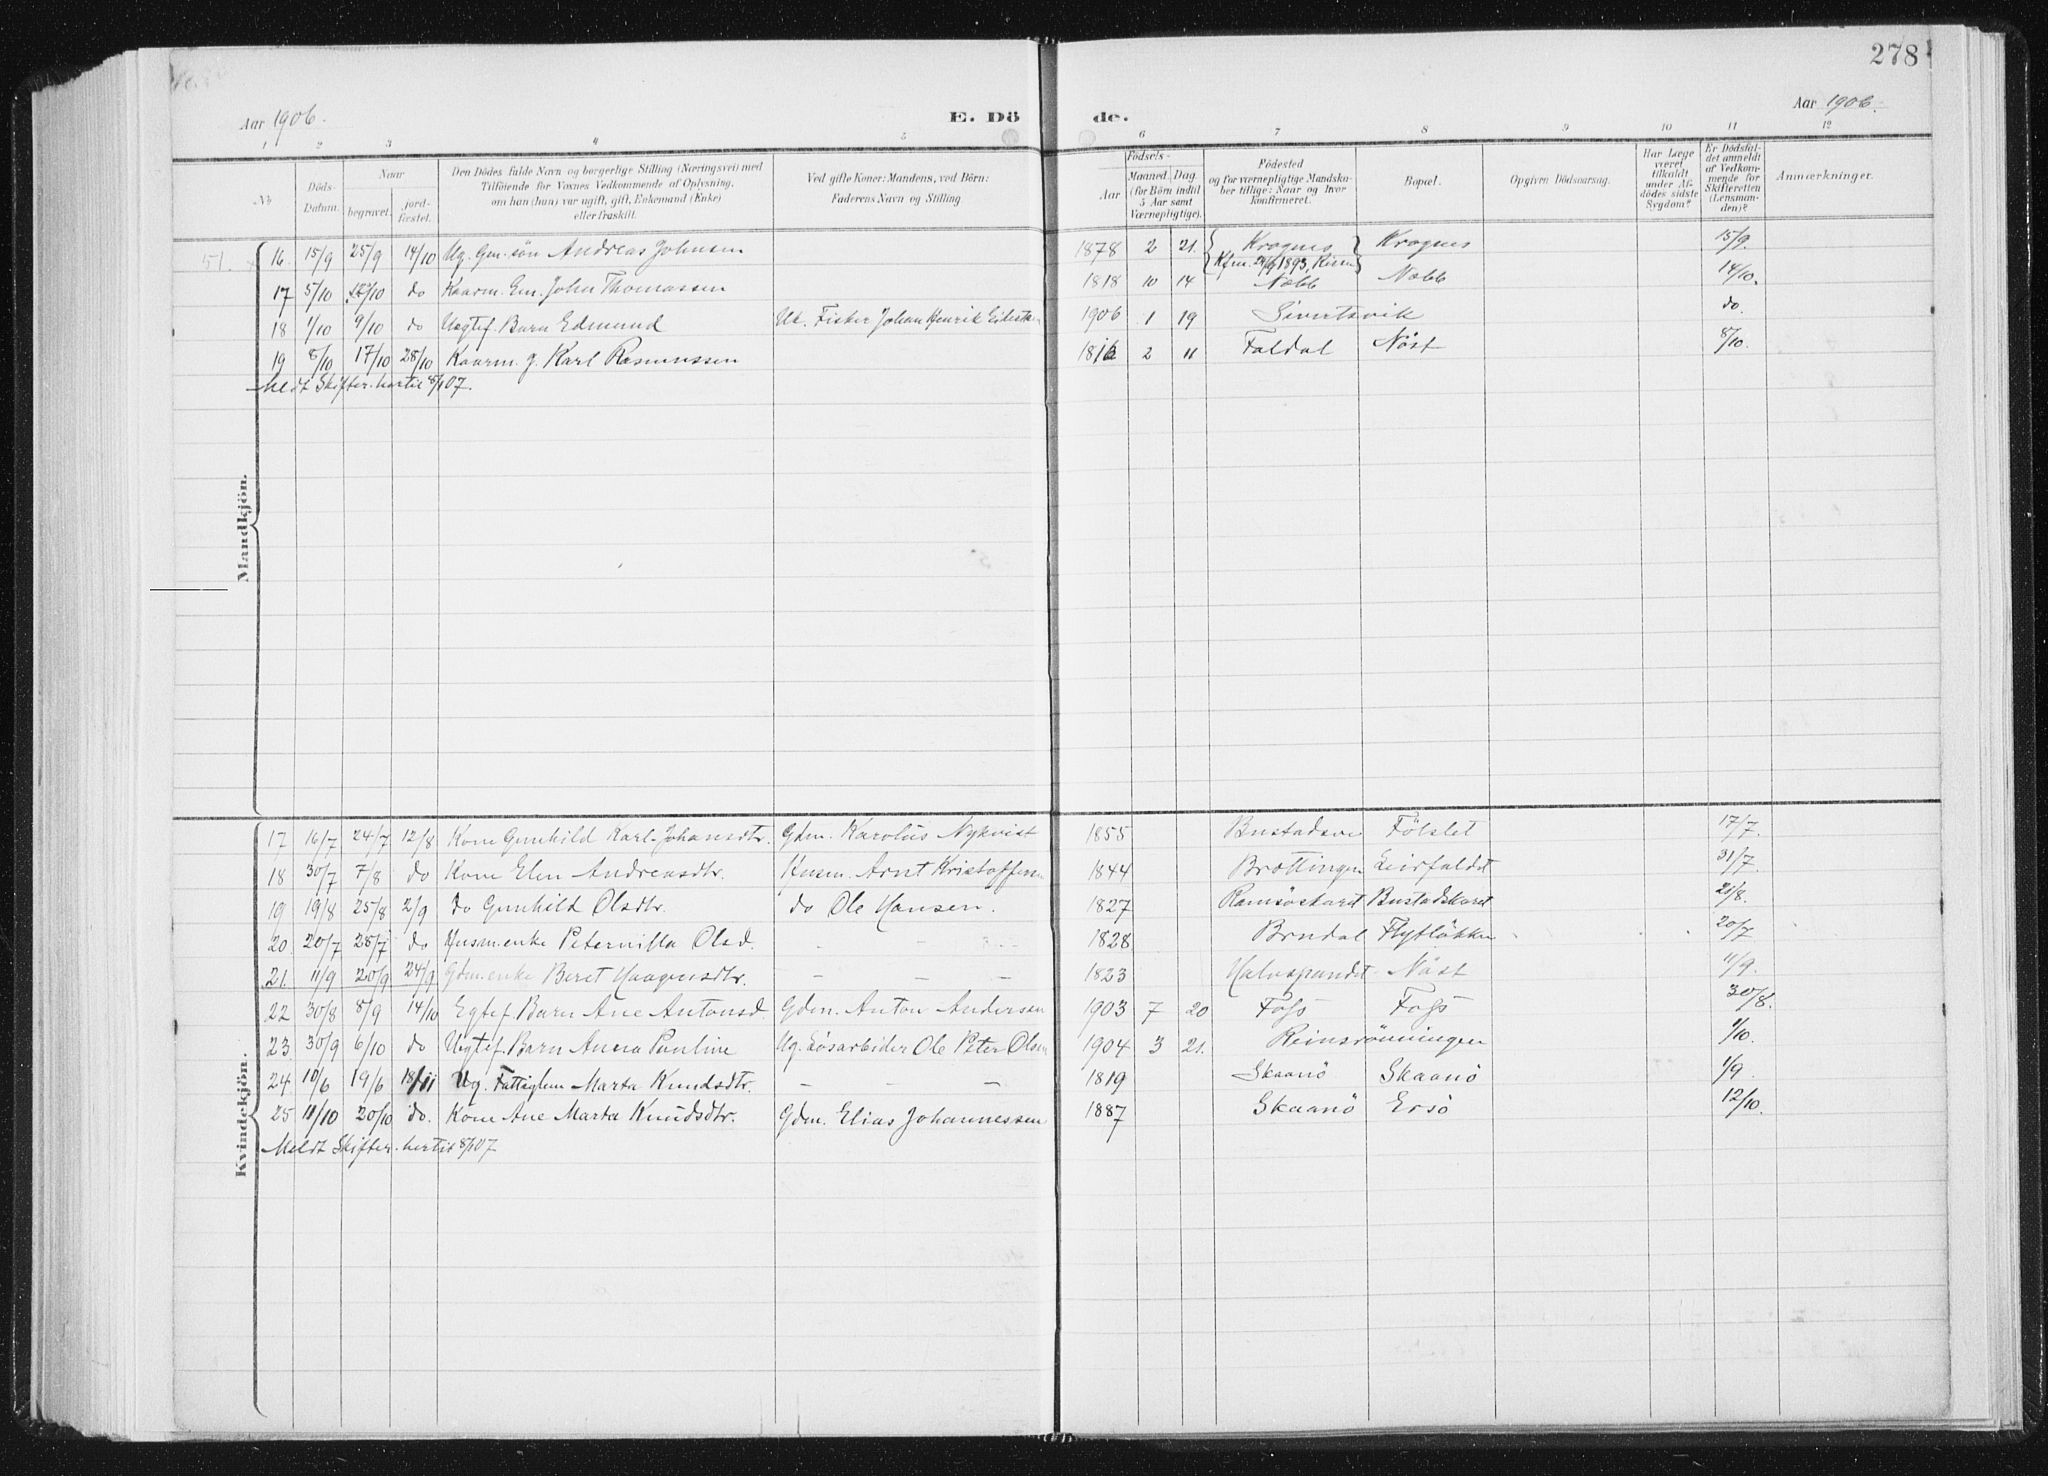 278
Aar 1906. E. Dö de. Aar 1906.
1 2 3 4 5 6 7 8 9 10 11 12
No
Döds-Datum.
Naar
begravet.
jord-fæstet.
Den Dödes fulde Navn og borgerlige Stilling (Næringsvei) med
Tilföiende for Voxnes Vedkommende af Oplysning,
om han (hun) var ugift, gift, Enkemand (Enke)
eller fraskilt.
Ved gifte Koner: Mandens, ved Börn:
Faderens Navn og Stilling.
Födsels-
Aar
Maaned. Dag
(for Börn indtil
5 Aar samt
Værnepligtige).
Födested
og for værnepligtige Mandska-
ber tillige: Naar og hvor
konfirmeret.
Bopæl.
Opgiven Dödsaarsag.
Har Læge
været
tilkaldt
under Af-
dödes sidste
Sygdom?
Er Dödsfal-
det anmeldt
af Vedkom-
mende for
Skifteretten
(Lensman-
den)?
Anmærkninger.
Mandkjön.
51. 16. 15/9 25/9 14/10 Ug. Gm. sön Andreas Johnsen 1878 2 21. Krognes Krognes 15/9
Kfm. 1893, Rissen
17 5/10 /10 do Kaarm. Em. John Thomassen 1818 10 14 Næbb Næbb 14/10.
18 1/10 9/10 do Uegtef. Barn Edmund Uk. Fisker Johan Henrik 1906 1 19 Sivertsvik do.
19 8/10 17/10 28/10 Kaarm. g. Karl Rasmussen 2 11 Faldal Nöst 8/10.
Meldt Skifter. hertil 8/1 07.
Kvindekjön.
17 16/7 24/7 12/8 Kone Gunhild Karl-Johansdtr. Gdm. Karolus Nykvist 1855 Bustadsve Fölslet 17/7.
18 30/7 7/8 do Kone Elen Andreasdtr. Husm. Arnt Kristoffersen 1844 Brøttingen Leirfaldet 31/7.
19 19/8 25/8 2/9 do Gunhild Olsdtr. do Ole Hansen. 1827 Ramsöskaret Bustadskaret 21/8.
20. 20/7 28/7 do Husm. enke Peternilla Olsd. - - 1828 Brndal 20/7
21. 11/9 20/9 24/9 Gdm. enke Beret Haagensdtr. - - - 1823 Nöst 11/9.
22 30/8 8/9 14/10 Egtef. Barn Ane Antonsd. Gdm. Anton Andersen 1903 7 20 Foss Foss 30/8.
23 30/9 6/10 do Uegtef. Barn Anna Pauline Ug. Lösarbeider Ole Peter Olsen 1904 3 21. Reinsrönningen 1/10.
24 10/6 19/6 18/11 Ug. Fattiglem Marta Knudsdtr. - - - 1819 Skaanö Skaanö 1/9.
25 11/10 20/10 do. Kone Ane Marta Knudsdtr. Gdm. Elias Johannessen 1887 Skaanö Ersö 12/10.
Meldt Skifter. hertil 8/1 07